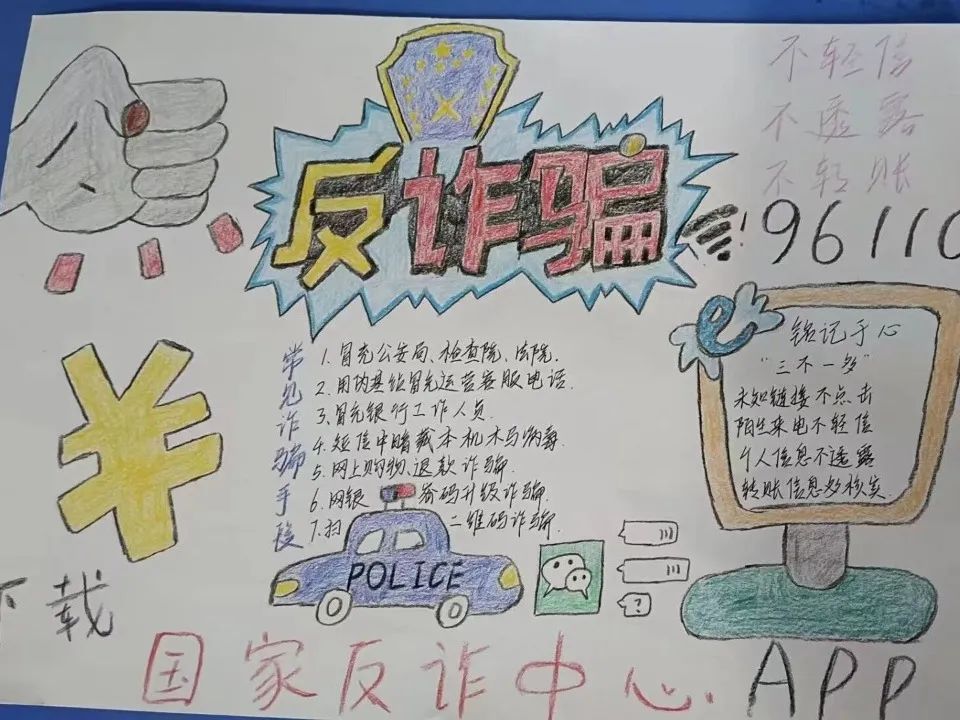 反诈骗
不轻信
不透露
不轻账
96110
常见诈骗手段
1.冒充公安局、检查院、法院.
2.用伪基站冒充运营客服电话
3.冒充银行工作人员
4.短信中暗藏本机木马病毒.
5.网上购物、退款诈骗.
6.网银 密码升级诈骗.
7.扫 二维码诈骗.
铭记于心
“三不一多”
未知链接不点击
陌生来电不轻信
个人信息不透露
转账信息多核实
POLICE
?
下载
国家反诈中心.APP